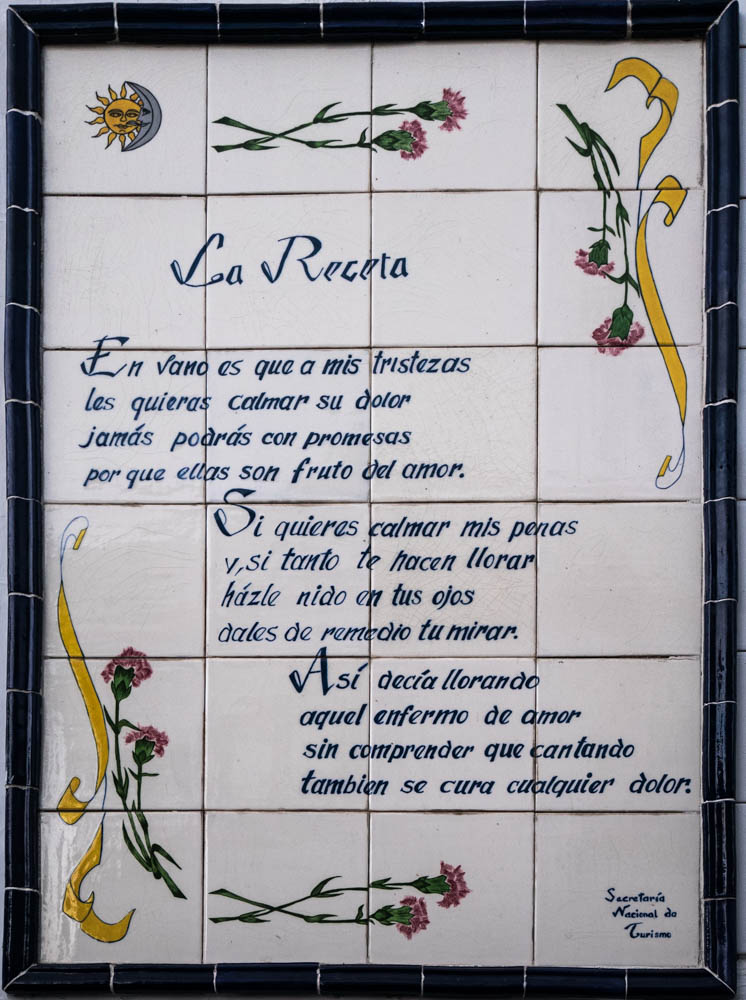 La Receta
En vano es que a mis tristezas
les quieras calmar su dolor
jamás podrás con promesas
por que ellas son fruto del amor.
Si quieres calmar mis penas
y,si tanto te hacen llorar
házle nido en tus ojos
dales de remedio tu mirar.
Así decía llorando
aquel enfermo de amor
sin comprender que cantando
tambien se cura cualquier dolor.
Secretaría
Nacional de
Turismo